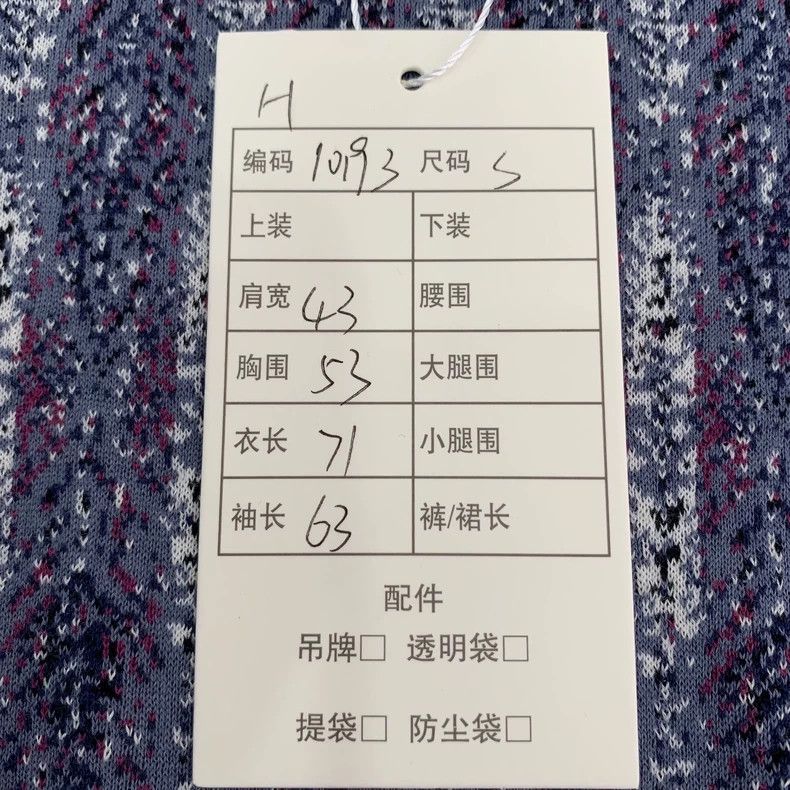 H
编码 10193 尺码 S
上装 下装
肩宽 43 腰围
胸围 53 大腿围
衣长 71 小腿围
袖长 63 裤/裙长
配件
吊牌□ 透明袋□
提袋□ 防尘袋□